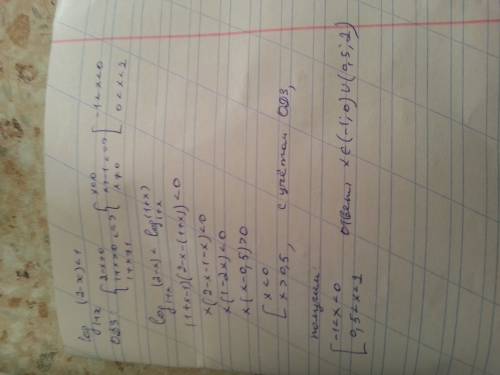 log₁₊ₓ (2-x) < 1
ОДЗ: { 2-x>0 1+x>0 1+x≠1 <=> { x<2 x>-1 x≠0 <=> [ -1<x<0 0<x<2
log₁₊ₓ (2-x) < log₁₊ₓ (1+x)
(1+x-1)(2-x-(1+x)) < 0
x(2-x-1-x)<0
x(1-2x)<0
x(x-0,5)>0
[ x<0 x>0,5 , с учётом ОДЗ,
получим
[ -1<x<0 0,5<x<2 Ответ: x∈(-1;0)∪(0,5;2)